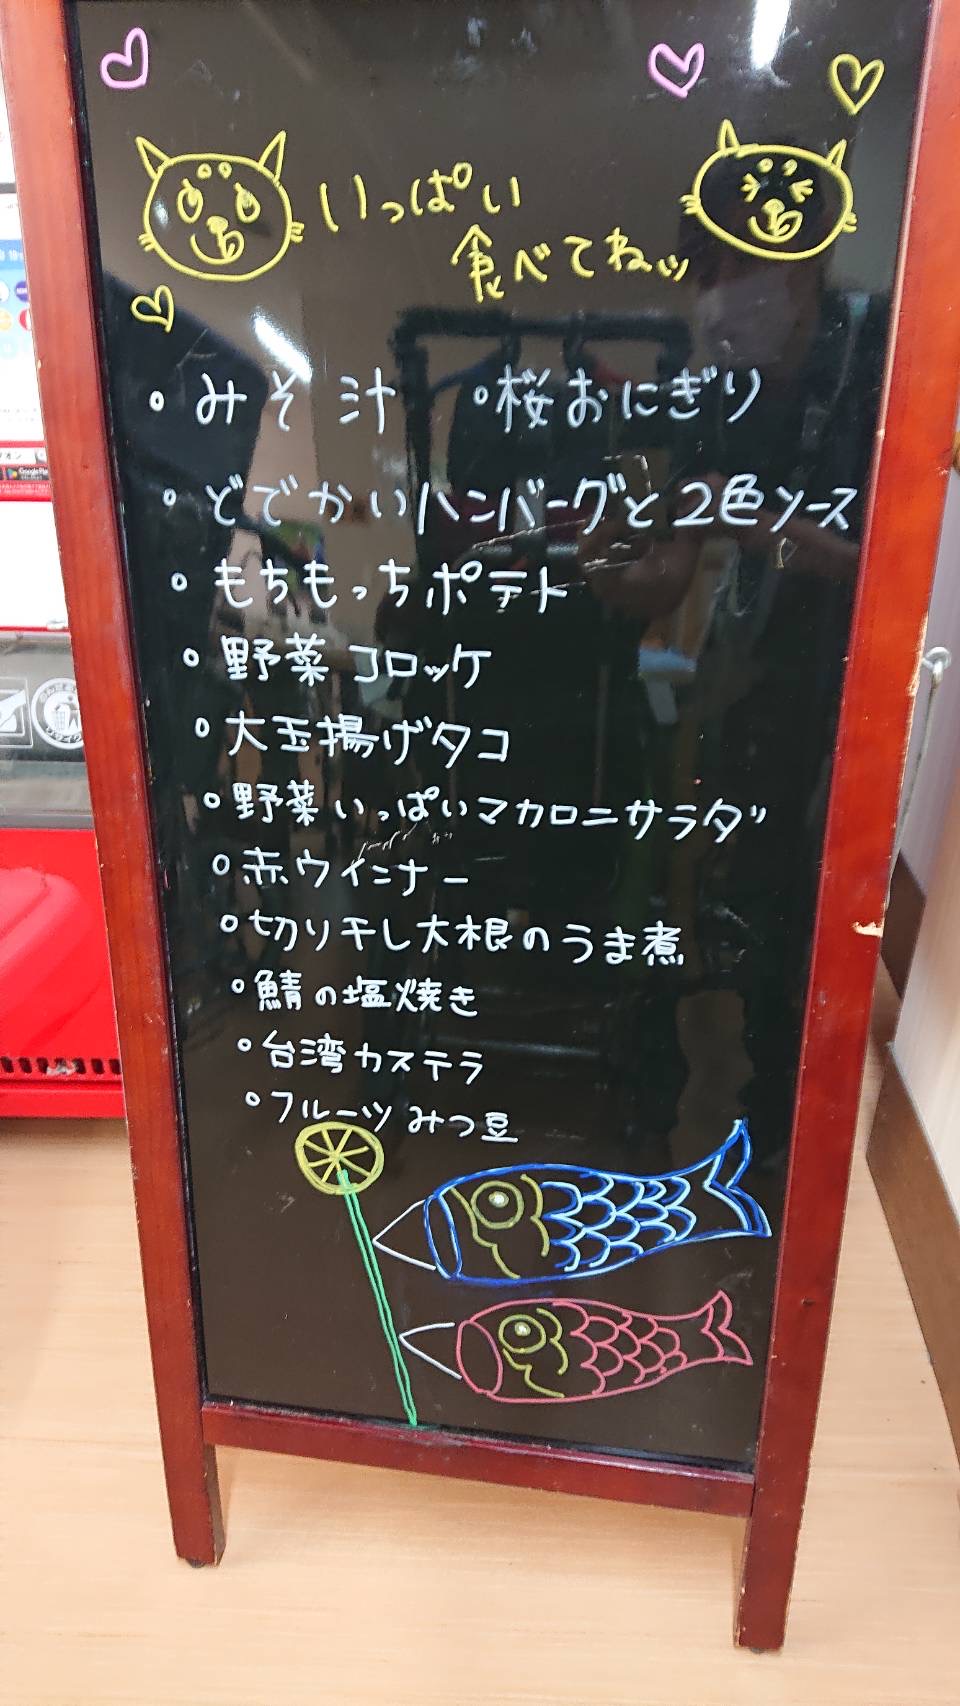 いっぱい
食べてねッ
・みそ汁 ・桜おにぎり
・どでかいハンバーグと2色ソース
・もちもっちポテト
・野菜コロッケ
・大玉揚げタコ
・野菜いっぱいマカロニサラダ
・赤ウインナー
・切り干し大根のうま煮
・鯖の塩焼き
・台湾カステラ
・フルーツみつ豆